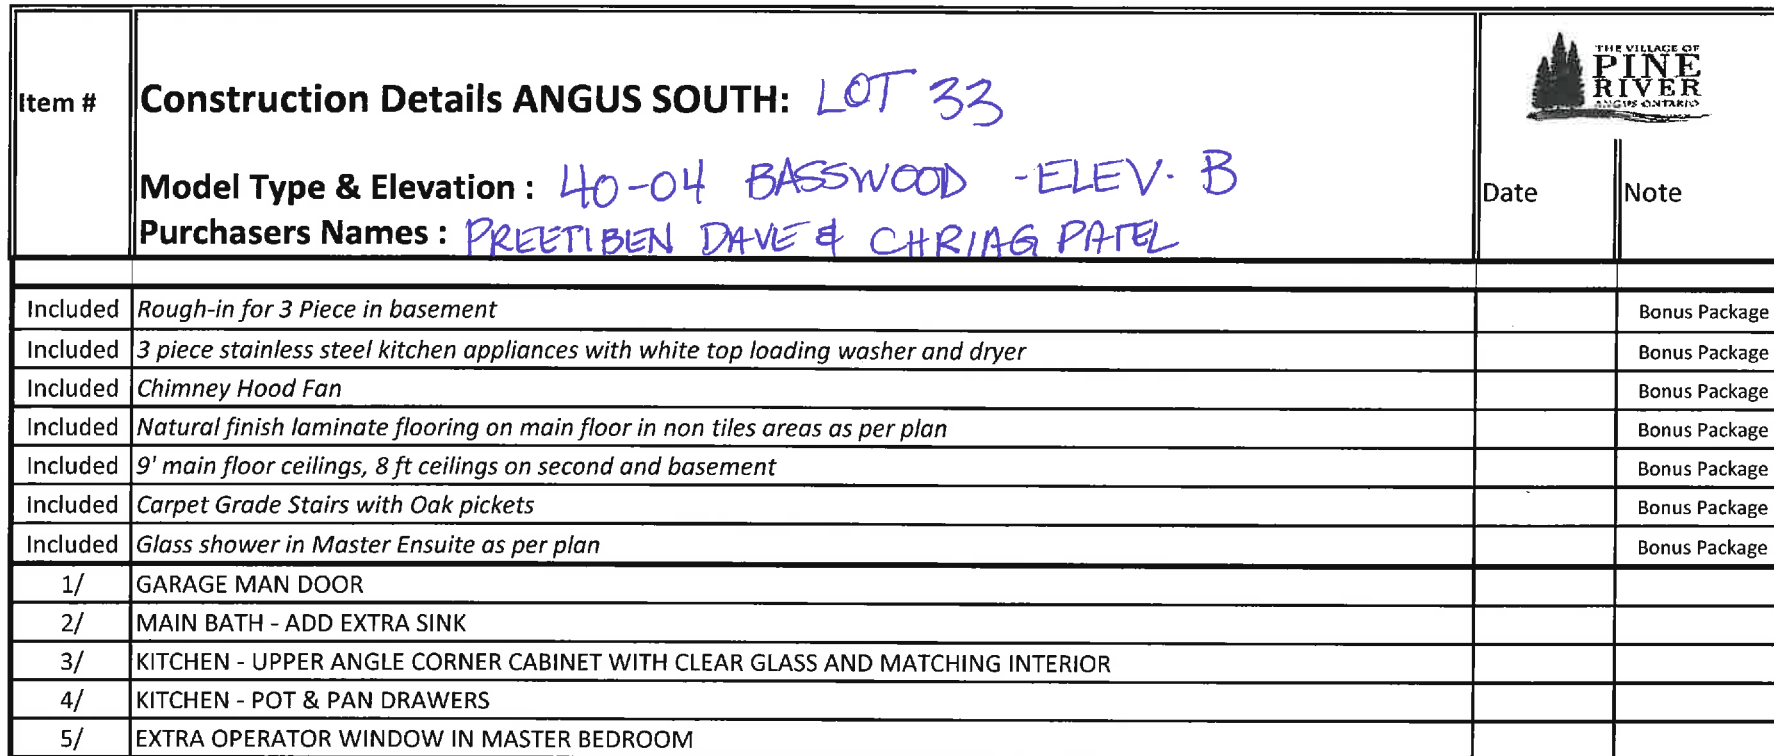 Item #
Construction Details ANGUS SOUTH: LOT 33
THE VILLAGE OF
PINE
RIVER
ANGUS ONTARIO
Model Type & Elevation : 40-04 BASSWOOD - ELEV. B
Date
Note
Purchasers Names : PREETIBEN DAVE & CHRIAG PATEL
Included Rough-in for 3 Piece in basement Bonus Package
Included 3 piece stainless steel kitchen appliances with white top loading washer and dryer Bonus Package
Included Chimney Hood Fan Bonus Package
Included Natural finish laminate flooring on main floor in non tiles areas as per plan Bonus Package
Included 9' main floor ceilings, 8 ft ceilings on second and basement Bonus Package
Included Carpet Grade Stairs with Oak pickets Bonus Package
Included Glass shower in Master Ensuite as per plan Bonus Package
1/ GARAGE MAN DOOR
2/ MAIN BATH - ADD EXTRA SINK
3/ KITCHEN - UPPER ANGLE CORNER CABINET WITH CLEAR GLASS AND MATCHING INTERIOR
4/ KITCHEN - POT & PAN DRAWERS
5/ EXTRA OPERATOR WINDOW IN MASTER BEDROOM